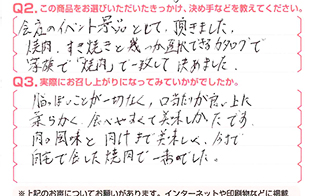 Q2. この商品をお選びいただいたきっかけ、決め手などを教えてください。
会店のイベント景品として、頂きました。
焼肉、すき焼きと幾つか選択できるカタログで
家族で"焼肉"で一致して決めました。
Q3. 実際にお召し上がりになってみていかがでしたか。
脂っぽいことが一切なく、口当たりが良い上に
柔らかく、食べやすくて美味しかったです。
肉の風味と肉汁まで美味しく、今まで
自宅で食した焼肉で一番でした。
※上記のお声についてお願いがあります。インターネットや印刷物などに掲載